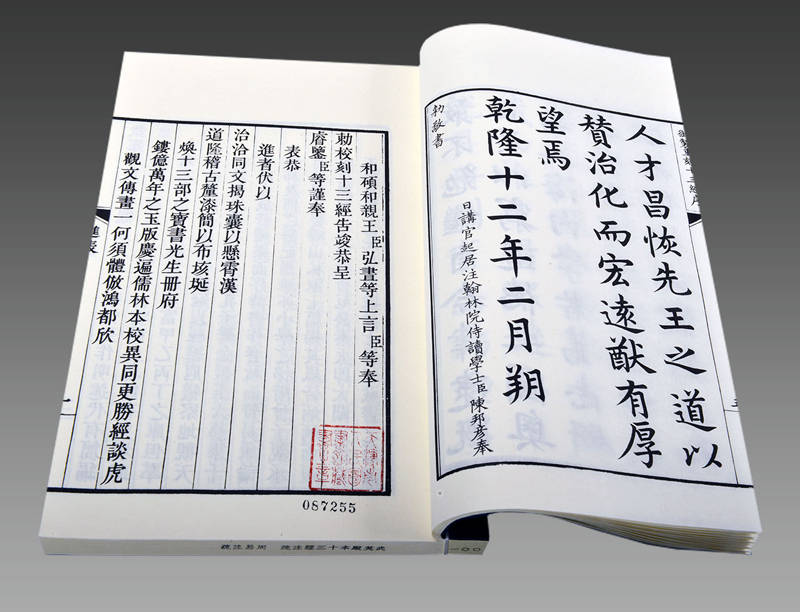 人才昌恢先王之道以
賛治化而宏遠猷有厚
望焉
乾隆十二年二月朔
日講官起居注翰林院侍讀學士臣陳邦彥奉
勅敬書
和碩和親王臣弘晝等上言臣等奉
勅校刻十三經告竣恭呈
睿鑒臣等謹奉
表恭
進者伏以
治洽同文揚珠囊以懸霄漢
道隆稽古釐漆簡以布垓埏
煥十三部之寶書光生冊府
鏤億萬年之玉版慶遍儒林本校異同更勝經談虎
觀文傳晝一何須體倣鴻都欣
進表
一
087255
武英殿本十三經注疏 周易注疏